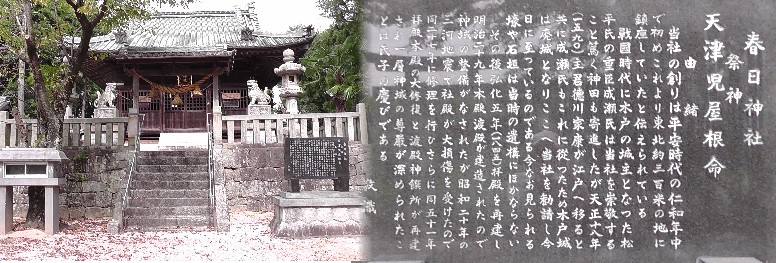 春日神社
祭神
天津児屋根命
由緒
当社の創りは平安時代の仁和年中
で初めこれより東北約三百米の地に
鎮座していたと伝えられている
戦国時代に木戸の城主となった松
平氏の重臣成瀬氏は当社を崇敬する
こと篤く神田も寄進したが天正十八年
(一五九〇)主君徳川家康が江戸へ移ると
共に成瀬氏もこれに従つたため木戸城
は廃城となりここへ当社を勧請し今
日に至っているのである今なお見られる
壕や石垣は当時の遺構にほかならない
その後弘化五年(一八四五)拝殿を再建し
明治二十九年本殿渡殿が建造されたので
神域の整備がなされたが昭和二十年の
三河地震で社殿が大損傷を受けたので
同二十七年修理を行ひさらに同五十一年
拝殿本殿の大修復と渡殿神饌所が再建
され一層神域の尊厳が深められたこ
とは氏子の慶びである